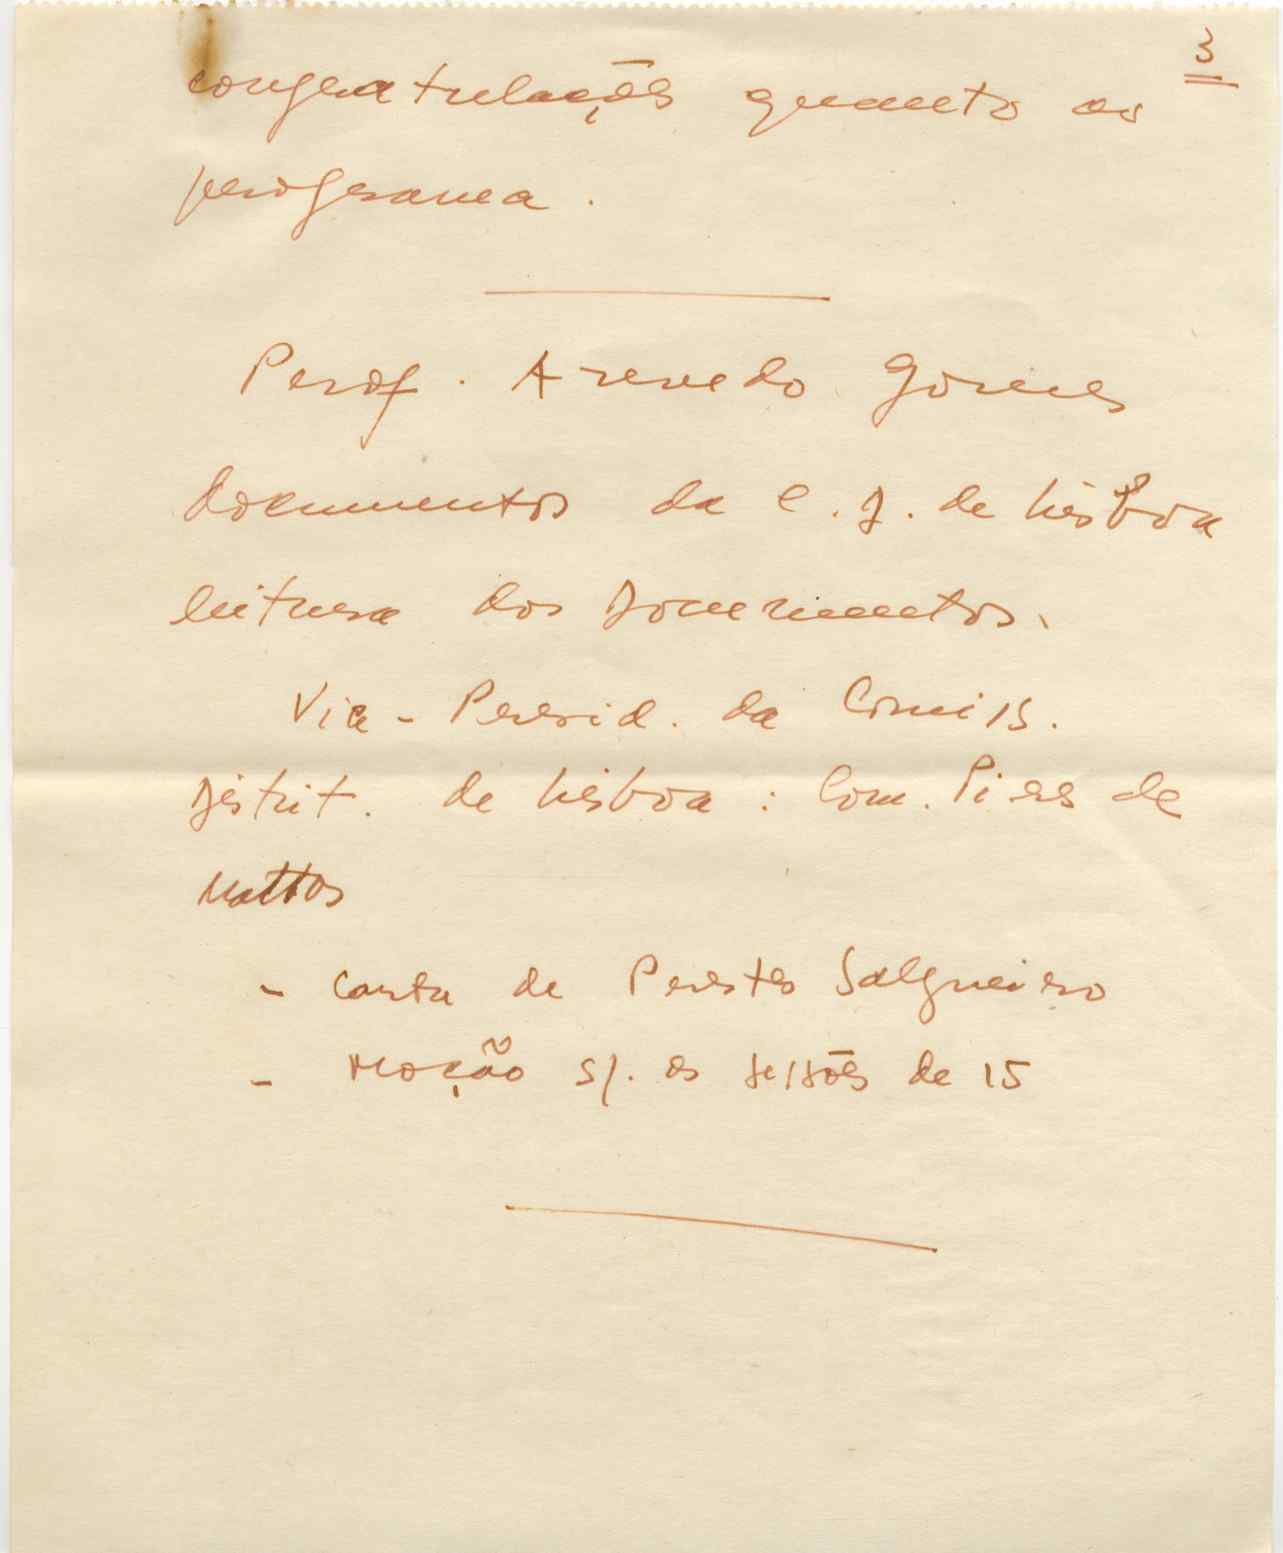 3
congratulações quanto ao
programa.
Prof. Azevedo Gomes
documentos da C. D. de Lisboa
leitura dos Documentos.
Vice-Presid. da Comiss.
Distrit. de Lisboa: Com. Pires de
Mattos
- Carta de Prestes Salgueiro
- Moção s/. as sessões de 15